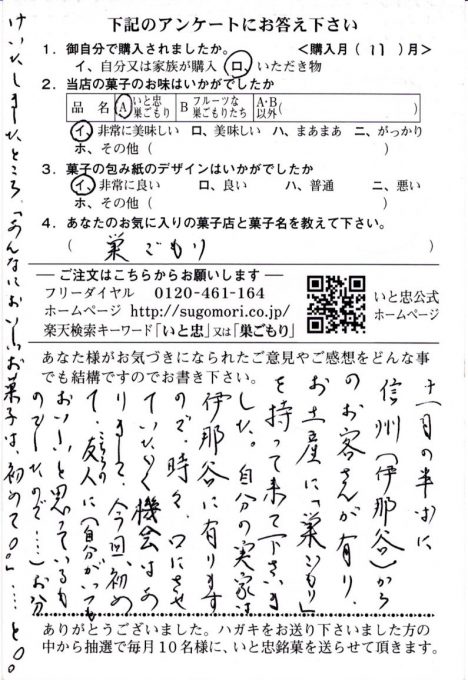 下記のアンケートにお答え下さい
1．御自分で購入されましたか。　＜購入月（11）月＞
イ、自分又は家族が購入　ロ、いただき物
2．当店の菓子のお味はいかがでしたか
品　名　A いと忠巣ごもり　B フルーツな巣ごもりたち　A・B以外（　　　）
イ、非常に美味しい　ロ、美味しい　ハ、まあまあ　ニ、がっかり
ホ、その他（　　　　　　　　）
3．菓子の包み紙のデザインはいかがでしたか
イ、非常に良い　ロ、良い　ハ、普通　ニ、悪い
ホ、その他（　　　　　　　　）
4．あなたのお気に入りの菓子店と菓子名を教えて下さい。
（　巣ごもり　）
ご注文はこちらからお願いします
フリーダイヤル　0120-461-164
ホームページ　http://sugomori.co.jp/
楽天検索キーワード「いと忠」又は「巣ごもり」
いと忠公式
ホームページ
あなた様がお気づきになられたご意見やご感想をどんな事
でも結構ですのでお書き下さい。
十一月の半ばに
信州（伊那谷）から
のお客さんが有り、
お土産に「巣ごもり」
を持って来て下さいま
した。自分の実家は
伊那谷に有ります
ので、時々、口にさせ
ていただく機会はあ
りまして、今回、初め
て、こちらの友人に（自分がいつも
おいしいと思っているも
のでしたので……）お分
けいたしましたところ、「あんなにおいしいお菓子は、初めて○○」……と○○
ありがとうございました。ハガキをお送り下さいました方の
中から抽選で毎月10名様に、いと忠銘菓を送らせて頂きます。